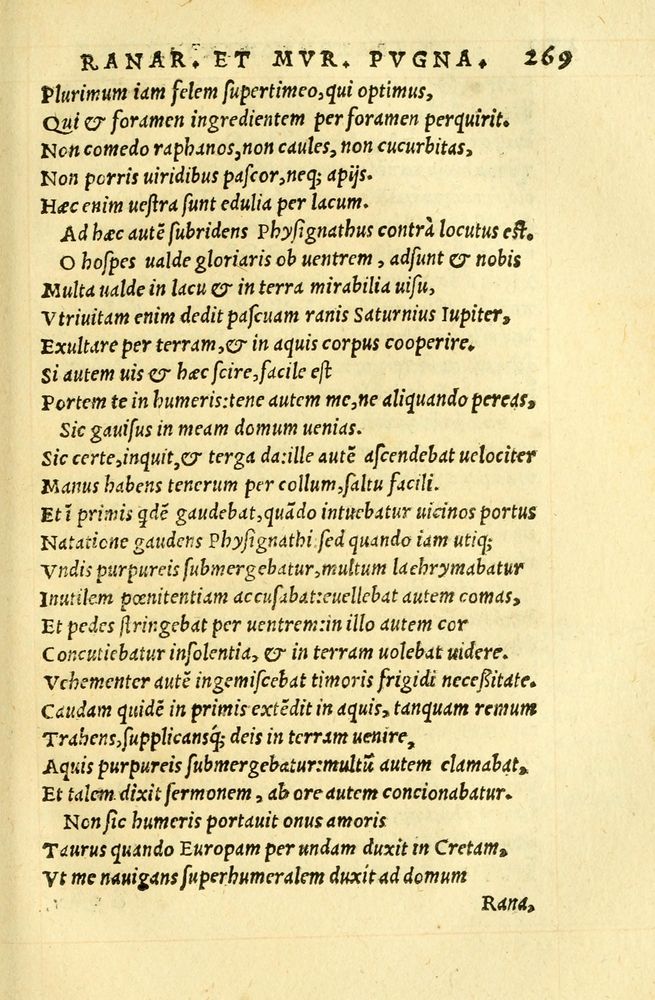 RANAR. ET MVR. PVGNA. 269
Plurimum iam felem supertimeo, qui optimus,
Qui & foramen ingredientem per foramen perquirit.
Non comedo raphanos, non caules, non cucurbitas,
Non porris uiridibus pascor, neq; apijs.
Hæc enim uestra sunt edulia per lacum.
Ad hæc autẽ subridens Physignathus contrà locutus est.
O hospes ualde gloriaris ob uentrem, adsunt & nobis
Multa ualde in lacu & in terra mirabilia uisu,
Vtriuitam enim dedit pascuam ranis Saturnius Iupiter,
Exultare per terram, & in aquis corpus cooperire.
Si autem uis & hæc scire, facile est
Portem te in humeris: tene autem me, ne aliquando pereas,
Sic gauisus in meam domum uenias.
Sic certe, inquit, & terga da: ille autẽ ascendebat uelociter
Manus habens tenerum per collum, saltu facili.
Et ĩ primis qdẽ gaudebat, quãdo intuebatur uicinos portus
Natatione gaudens Physignathi: sed quando iam utiq;
Vndis purpureis submergebatur, multum lachrymabatur
Inutilem pœnitentiam accusabat: euellebat autem comas,
Et pedes stringebat per uentrem: in illo autem cor
Concutiebatur insolentia, & in terram uolebat uidere.
Vehementer autẽ ingemiscebat timoris frigidi necessitate.
Caudam quidẽ in primis extẽdit in aquis, tanquam remum
Trahens, supplicansq; deis in terram uenire,
Aquis purpureis submergebatur: multũ autem clamabat,
Et talem dixit sermonem, ab ore autem concionabatur.
Non sic humeris portauit onus amoris
Taurus quando Europam per undam duxit in Cretam,
Vt me nauigans superhumeralem duxit ad domum
Rana,